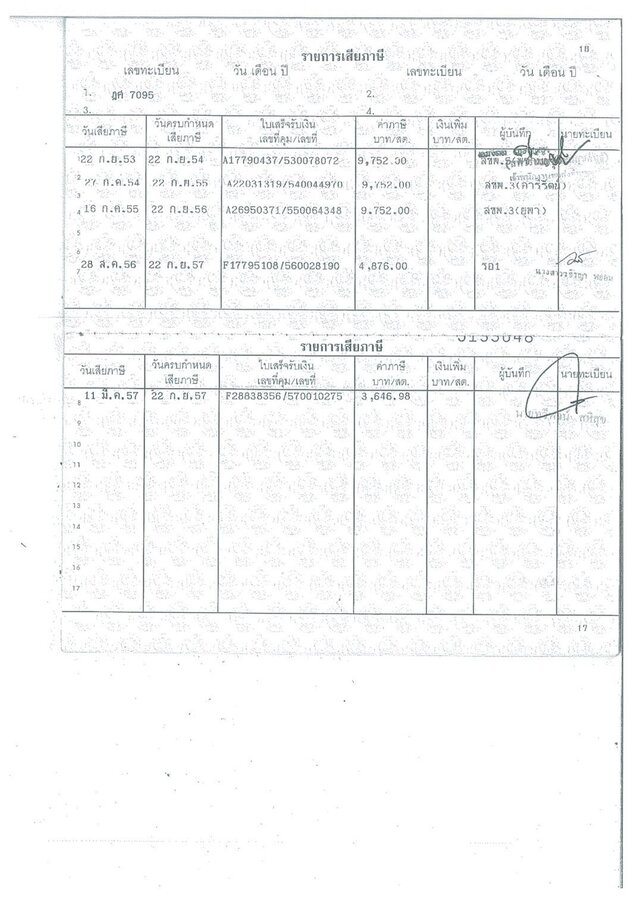 18
รายการเสียภาษี
เลขทะเบียน วัน เดือน ปี เลขทะเบียน วัน เดือน ปี
1. ฎศ 7095 2.
3. 4.
วันเสียภาษี วันครบกำหนดเสียภาษี ใบเสร็จรับเงิน เลขที่คุม/เลขที่ ค่าภาษี บาท/สต. เงินเพิ่ม บาท/สต. ผู้บันทึก นายทะเบียน
22 ก.ย.53 22 ก.ย.54 A17790437/530078072 9,752.00
2 27 ก.ค.54 22 ก.ย.55 A22031319/540044970 9,752.00 สขพ.3
4 16 ก.ค.55 22 ก.ย.56 A26950371/550064348 9.752.00 สขพ.3(ยุพา)
5
6
7 28 ส.ค.56 22 ก.ย.57 F17795108/560028190 4,876.00 รอ1
0153048
รายการเสียภาษี
วันเสียภาษี วันครบกำหนดเสียภาษี ใบเสร็จรับเงิน เลขที่คุม/เลขที่ ค่าภาษี บาท/สต. เงินเพิ่ม บาท/สต. ผู้บันทึก นายทะเบียน
8 11 มี.ค.57 22 ก.ย.57 F28838356/570010275 3,646.98
9
10
11
12
13
14
15
16
17
17